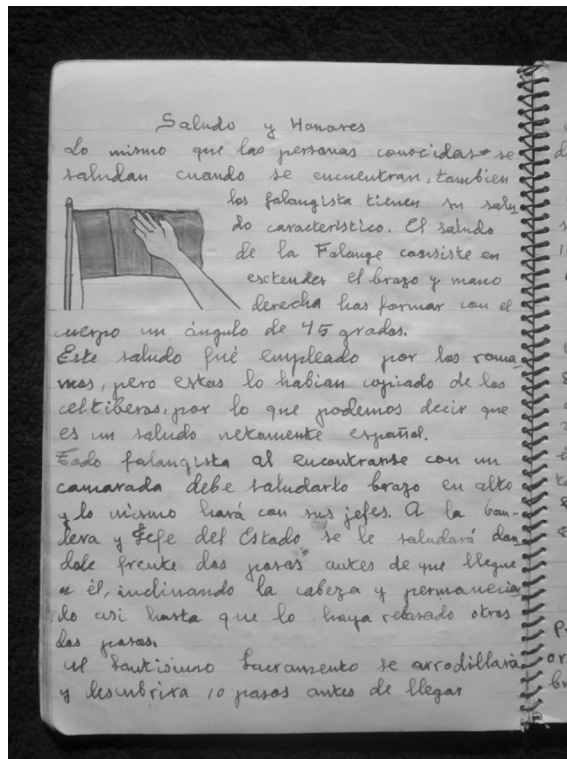 Saludo y Honores
Lo mismo que las personas conocidas se
saludan cuando se encuentran, tambien
los falangista tienen su salu
do caracteristico. El saludo
de la Falange consiste en
esctender el brazo y mano
derecha has formar con el
cuerpo un ángulo de 45 grados.
Este saludo fué empleado por los roma-
nos, pero estos lo habian copiado de los
celtiberos, por lo que podemos decir que
es un saludo netamente español.
Todo falangista al encontrarse con un
camarada debe saludarlo brazo en alto
y lo mismo hará con sus jefes. A la ban-
dera y Jefe del Estado se le saludará dan
dole frente dos pasos antes de que llegue
a él, inclinando la cabeza y permanecien
do asi hasta que lo haya rebasado otros
dos pasos.
Al Santisimo Sacramento se arrodillará
y descubrira 10 pasos antes de llegar